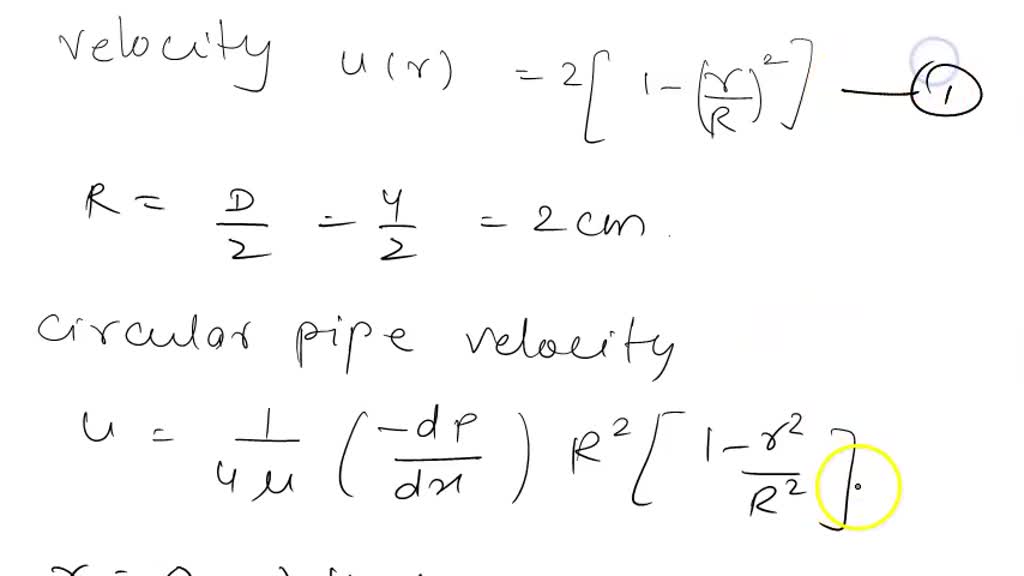 velocity u(r) = 2[1-(r/R)²] — ①
R = D/2 = 4/2 = 2 cm.
circular pipe velocity
u = 1/4μ (-dP/dx) R² [1-r²/R²]